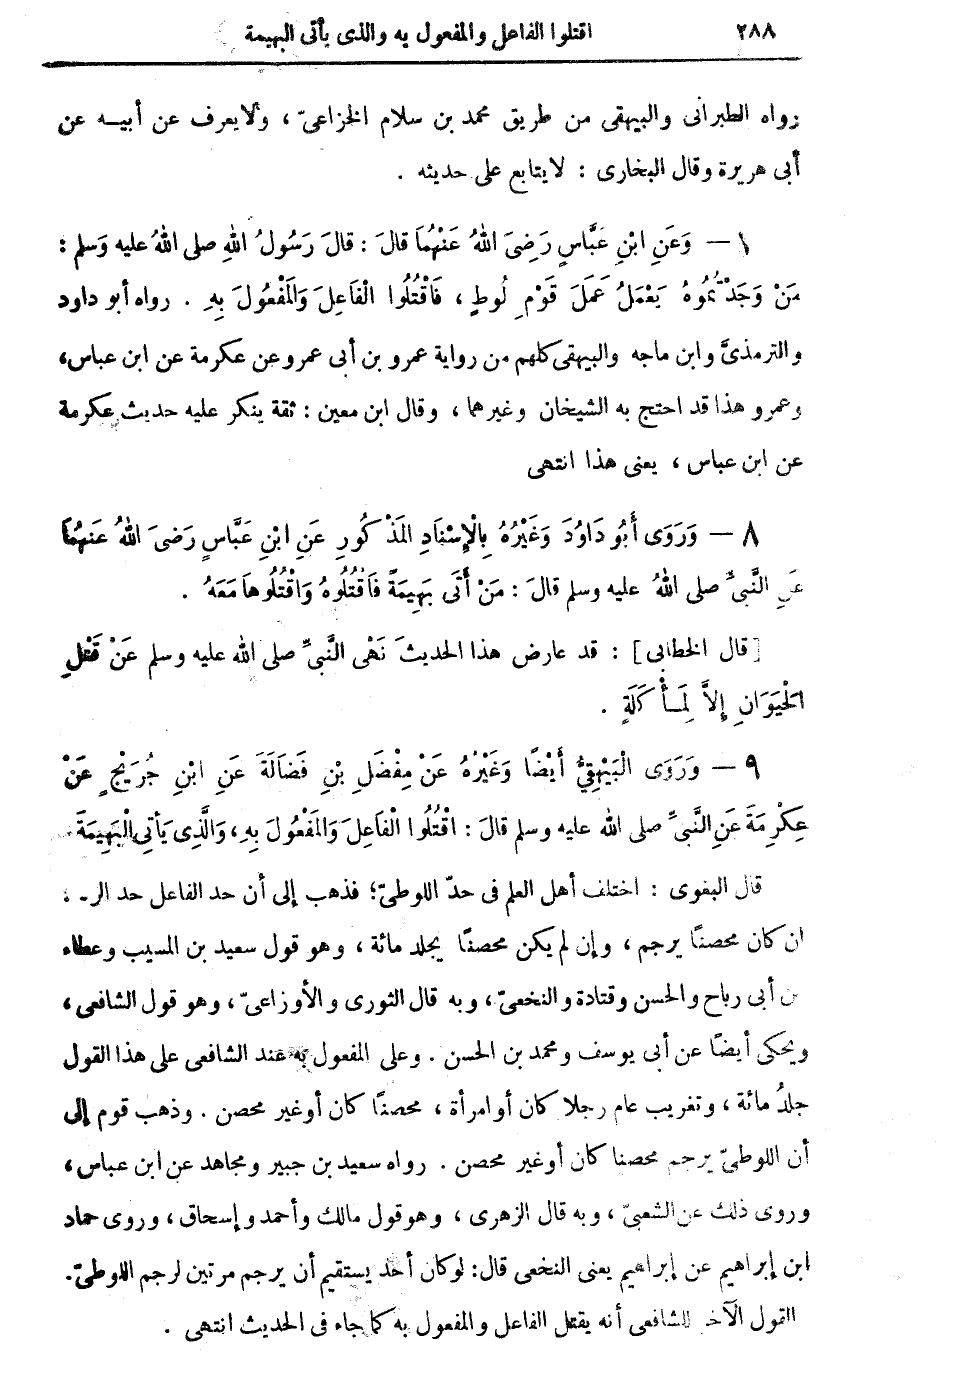 ٢٨٨ اقتلوا الفاعل والمفعول به والذى يأتى البهيمة
رواه الطبرانى والبيهقى من طريق محمد بن سلام الخزاعىّ ، ولايعرف عن أبيـه عن
أبى هريرة وقال البخارى : لايتابع على حديثه .
١ — وَعَنِ ابْنِ عَبَّاسٍ رَضِىَ اللهُ عَنْهُمَا قالَ : قالَ رَسُولُ اللهِ صلى اللهُ عليه وَسلم :
مَنْ وَجَدْتُمُوهُ يَعْمَلُ عَمَلَ قَوْمِ لُوطٍ ، فَاقْتُلُوا الْفَاعِلَ وَالمَفْعُولَ بِهِ . رواه أبو داود
والترمذىَّ وابن ماجه والبيهقى كلهم من رواية عمرو بن أبى عمرو عن عكرمة عن ابن عباس،
وعمرو هذا قد احتج به الشيخان وغيرهما ، وقال ابن معين : ثقة ينكر عليه حديث عكرمة
عن ابن عباس ، يعنى هذا انتهى
٨ — وَرَوَى أَبُو دَاوُدَ وَغَيْرُهُ بِالْإِسْنَادِ المَذْكُورِ عَنِ ابْنِ عَبَّاسٍ رَضىَ اللهُ عَنهُمَا
عَنِ النَّبىِّ صلى اللهُ عليه وسلم قالَ : مَنْ أَتَى بَهِيمَةً فَاقْتُلُوهُ وَاقْتُلُوهاَ مَعَهُ .
[قال الخطابى] : قد عارض هذا الحديثَ نَهْى النَّبىِّ صلى الله عليه وسلم عَنْ قَتْلِ
الحَيَوَانِ إِلاَّ لِمَـأْكَلَةٍ .
٩ — وَرَوَى الْبَيْهَقِىُّ أَيْضًا وَغَيْرُهُ عَنْ مِفْضَلِ بْنِ فَضَالَةَ عَنِ ابْنِ جُرَيْجٍ عَنْ
عِكْرِمَةَ عَنِ النَّبىِّ صلى الله عليه وسلم قالَ : اقْتُلُوا الْفَاعِلَ وَالمَفْعُولَ بِهِ، وَالَّذِى يَأتى الْبَهِيمَةَ
قال البغوى : اختلف أهل العلم فى حدّ اللوطىّ؛ فذهب إلى أن حد الفاعل حد
ان كان محصنًا يرجم ، وإن لم يكن محصنًا يجلد مائة ، وهو قول سعيد بن المسيب وعطاء
بن أبى رباح والحسن وقتادة والنخعىّ ، وبه قال الثورى والأوزاعىّ ، وهو قول الشافعى ،
ويحكى أيضًا عن أبى يوسف ومحمد بن الحسن . وعلى المفعول به عند الشافعى على هذا القول
جلدُ مائة ، وتغريب عام رجلا كان أو امرأة ، محصنًا كان أوغير محصن . وذهب قوم إلى
أن اللوطىّ يرجم محصنا كان أوغير محصن . رواه سعيد بن جبير ومجاهد عن ابن عباس ،
وروى ذلك عن الشعبىّ ، وبه قال الزهرى ، وهو قول مالك وأحمد وإسحاق ، وروى حماد
ابن إبراهيم عن إبراهيم يعنى النخعى قال: لوكان أحد يستقيم أن يرجم مرتين لرجم اللوطىّ.
القول الآخر للشافعى أنه يقتل الفاعل والمفعول به كما جاء فى الحديث انتهى .